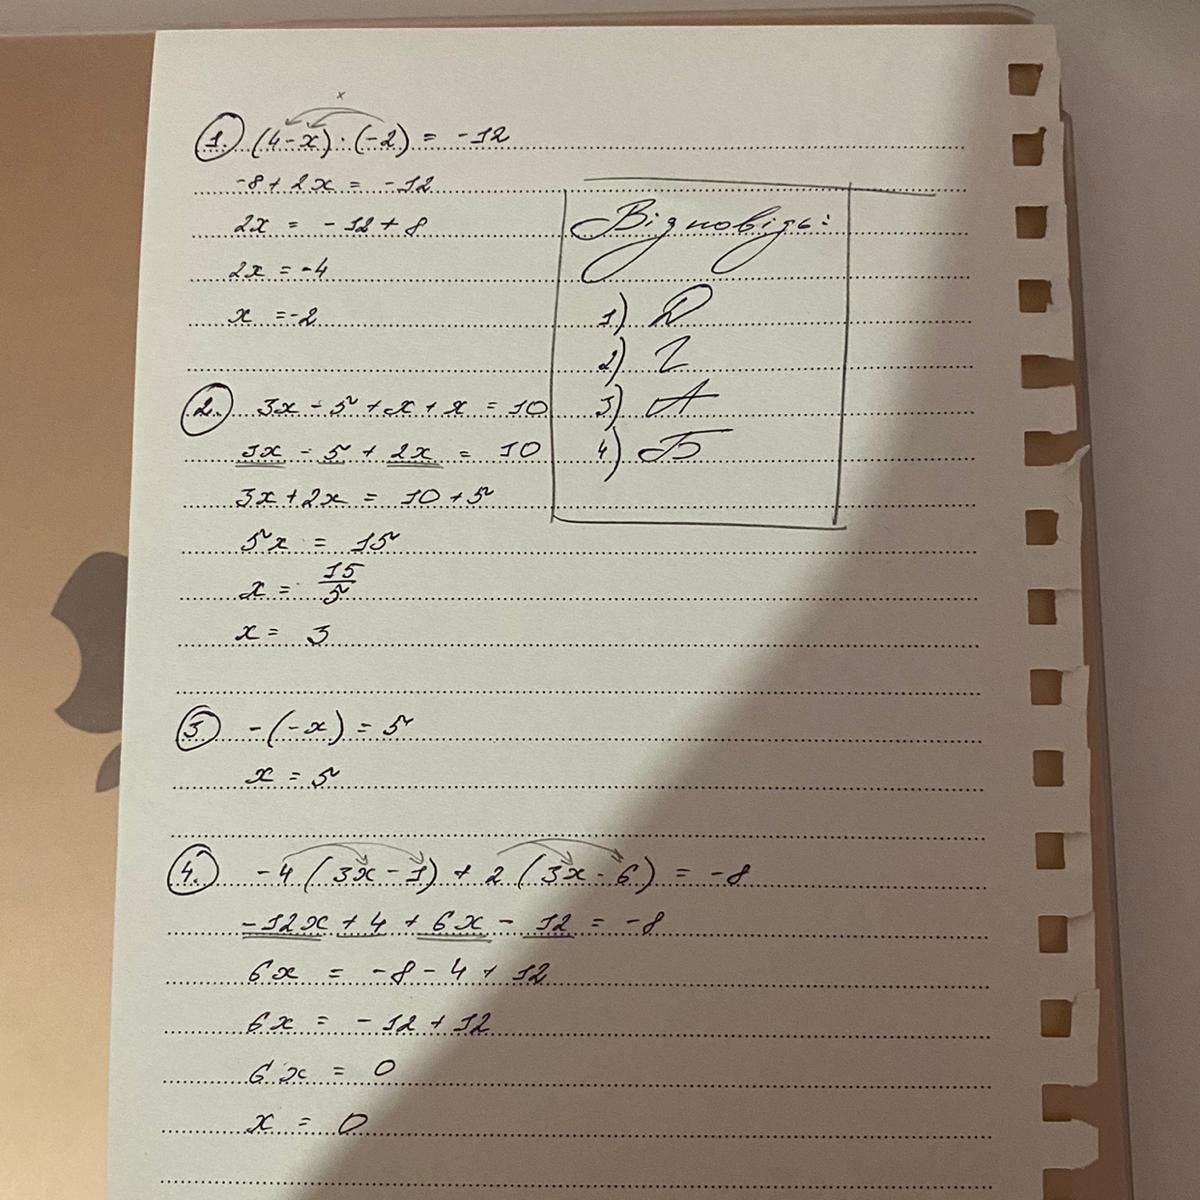 1. (4-x)·(-2) = -12
-8+2x = -12
2x = -12+8
2x = -4
x = -2
2. 3x - 5 + x + x = 10
3x - 5 + 2x = 10
3x+2x = 10+5
5x = 15
x = 15/5
x = 3
3 -(-x) = 5
x = 5
4. -4(3x-1)+2(3x-6) = -8
-12x+4+6x-12 = -8
6x = -8-4+12
6x = -12+12
6x = 0
x = 0
Відповідь:
1) Д
2) Г
3) А
4) Б